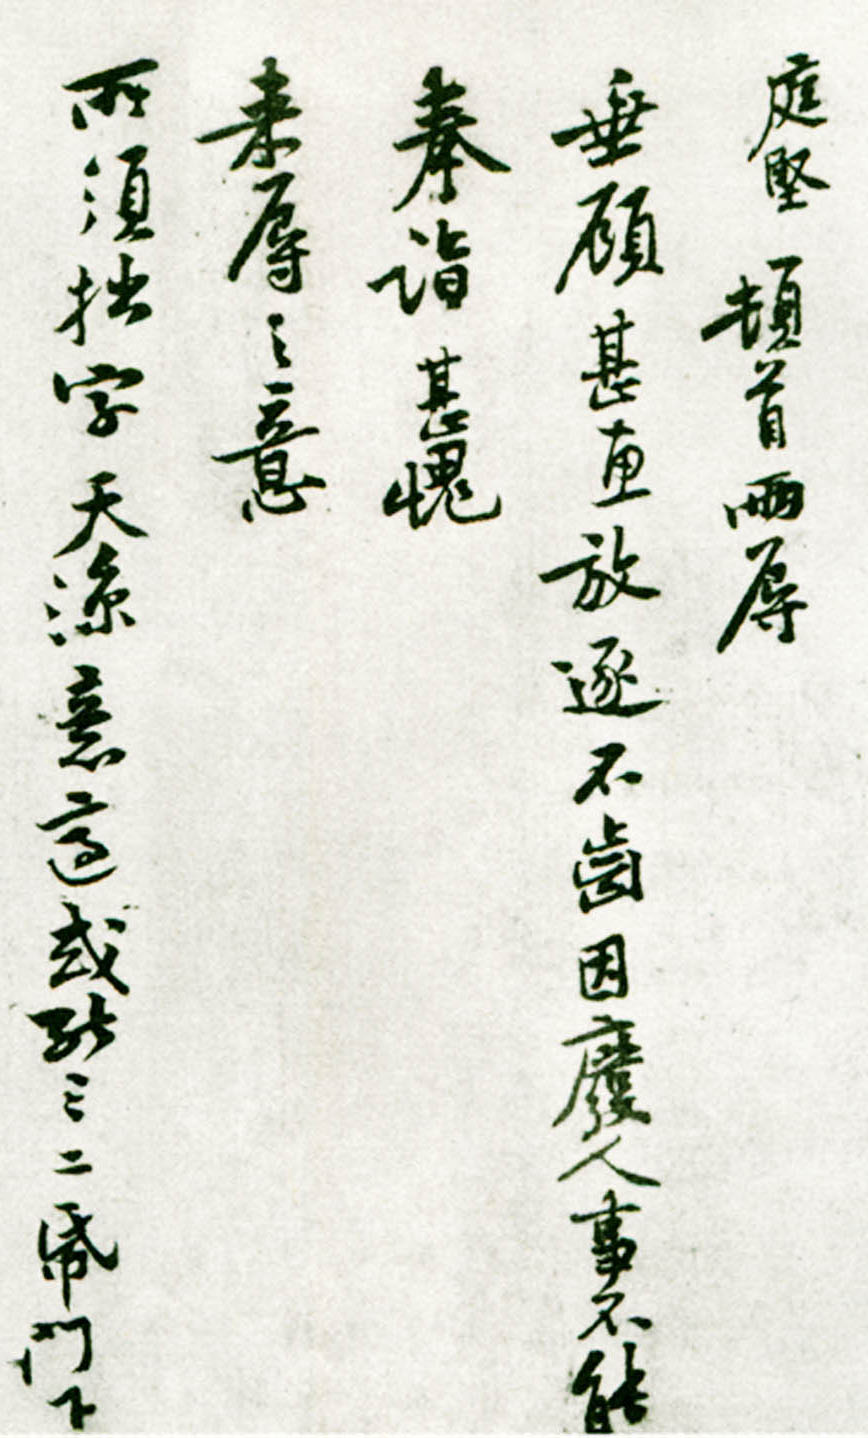 庭堅頓首兩辱
垂顧甚惠放逐不齒因廢人事不能
奉詣甚愧
来辱之意
所須拙字天涼意適或能三二帋門下